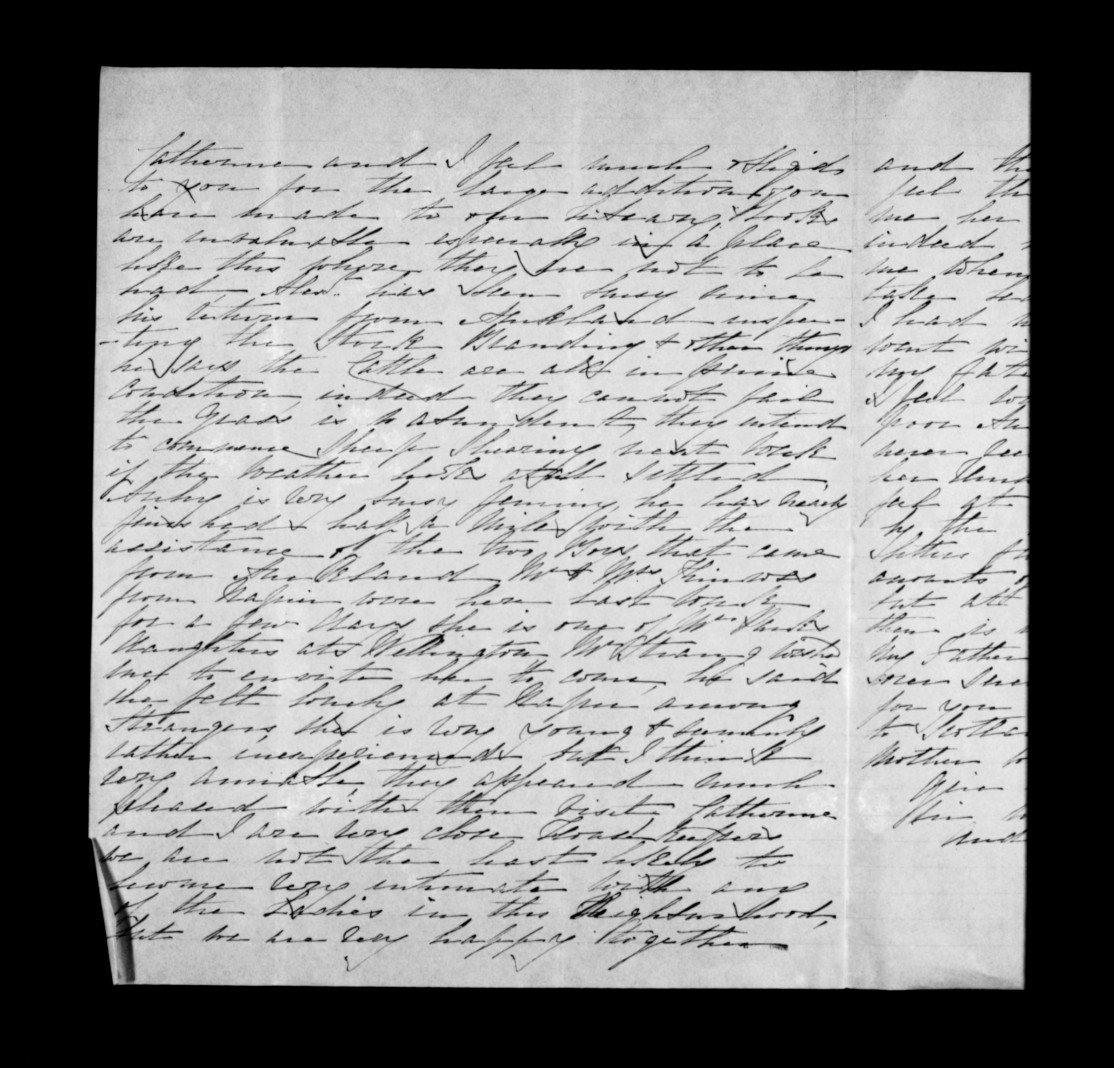 Catherine and I feel much obliged
to you for the large addition you
have made to our Library, Books
are invaluable especially in a place
like this where they are not to be
had. Alexr. has been busy since
his return from Auckland inspec-
-ting the Stock Branding & other things
he says the Cattle are all in prime
condition, indeed they cannot fail
the grass is so abundant, they intend
to commence Sheep Shearing next week
if the weather looks at all settled,
is very busy fencing, he has nearly
finished & half a Mile with the
assistance of the two Boys that came
from Auckland Mr & Mrs
from Napier were here last week
for a few days she is one of Mrs
daughters at Wellington Mr Strang wished
me to invite her to come, he said
she felt lonely at Napier among
Strangers she is very young & seemingly
rather inexperienced but I think
very amiable, they appeared much
pleased with their visit Catherine
and I are very close
we are not the least likely to
become very intimate with any
of the Ladies in this Neighbourhood,
but we are very happy together
and the
feel the
me her
indeed
me when
take
I had
went wi
my fat
I feel
poor
never
her
feel at
by the
accounts o
but all
there is
My Father
ever
for you
to Scotla
Mother
Give
and